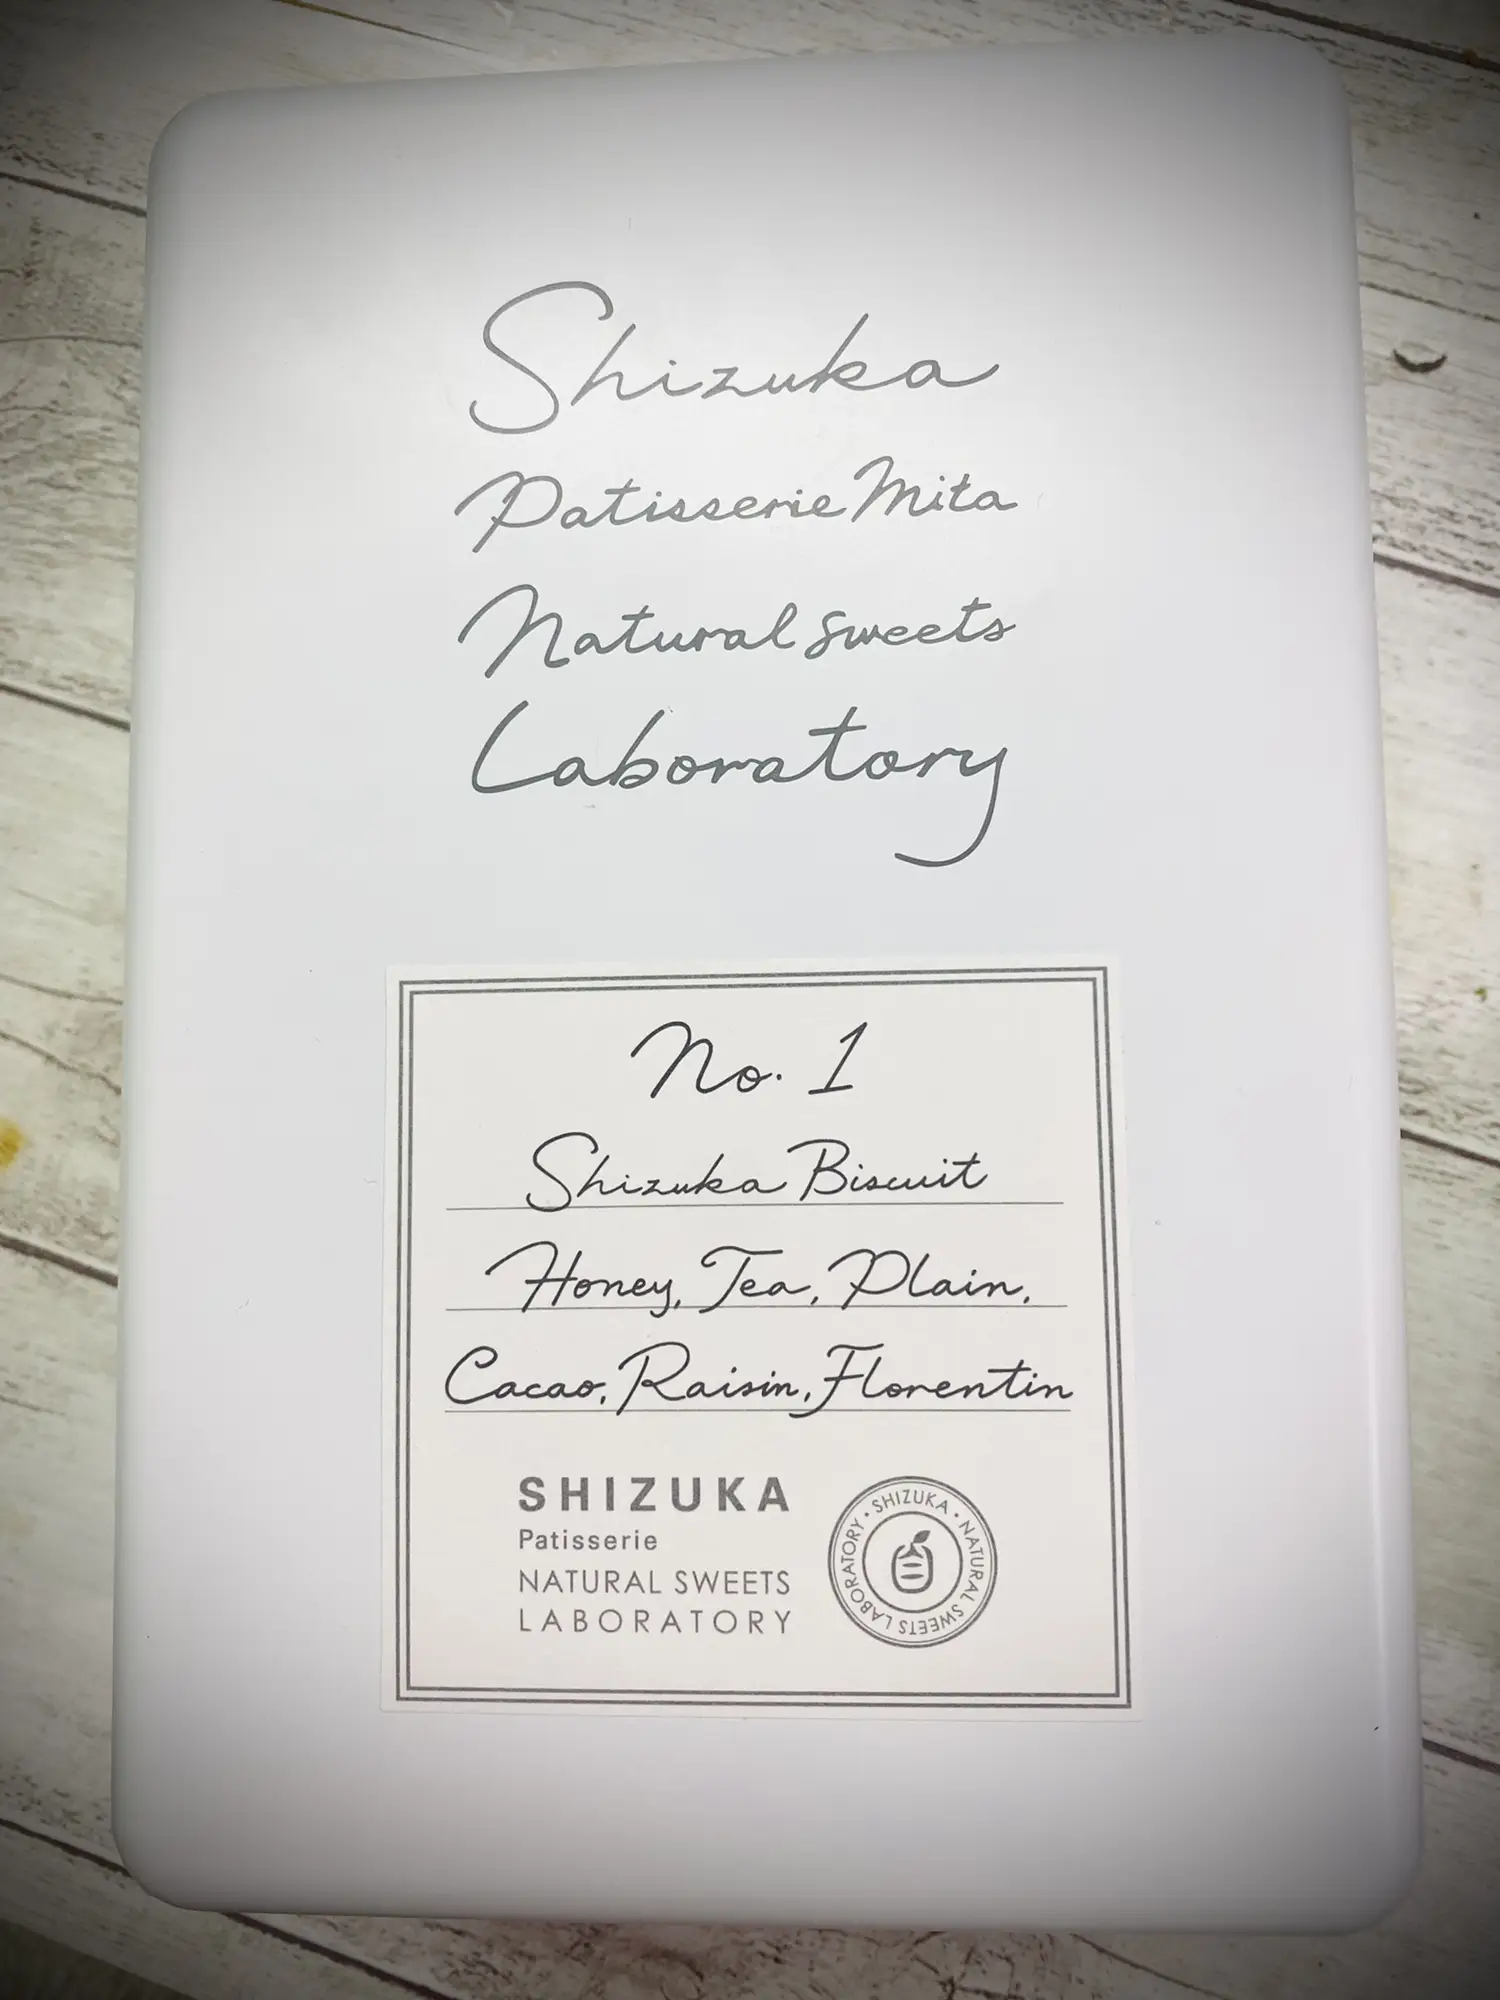 Shizuka
Patisserie Mita
Natural sweets
Laboratory
No. 1
Shizuka Biscuit
Honey, Tea, Plain,
Cacao, Raisin, Florentin
SHIZUKA
Patisserie
NATURAL SWEETS
LABORATORY
SHIZUKA • NATURAL SWEETS LABORATORY •